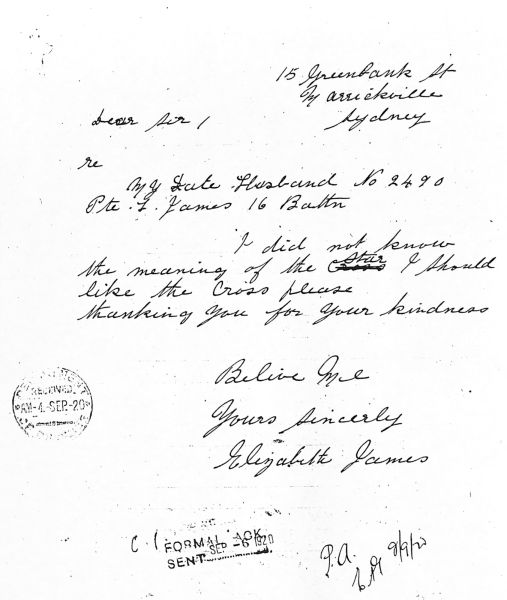 15 Greenbank St
Marrickville
Sydney
Dear Sir,
re
My Late Husband No 2490
Pte. F. James 16 Battn
I did not know
the meaning of the Cross Star I should
like the Cross please
thanking You for Your kindness
Belive Me
Yours Sincerly
Elizabeth James
RECEIVED
AM-4-SEP-20
FORMAL ACK
SENT SEP -6 1920
P.A.
9/9/20